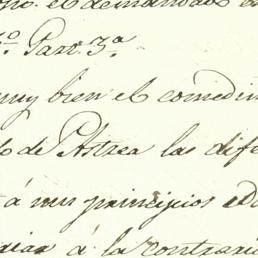 el demandado
3.º Part. 3.ª
muy bien el comedim
de Astrea las dife
á mis principios
á la contraria